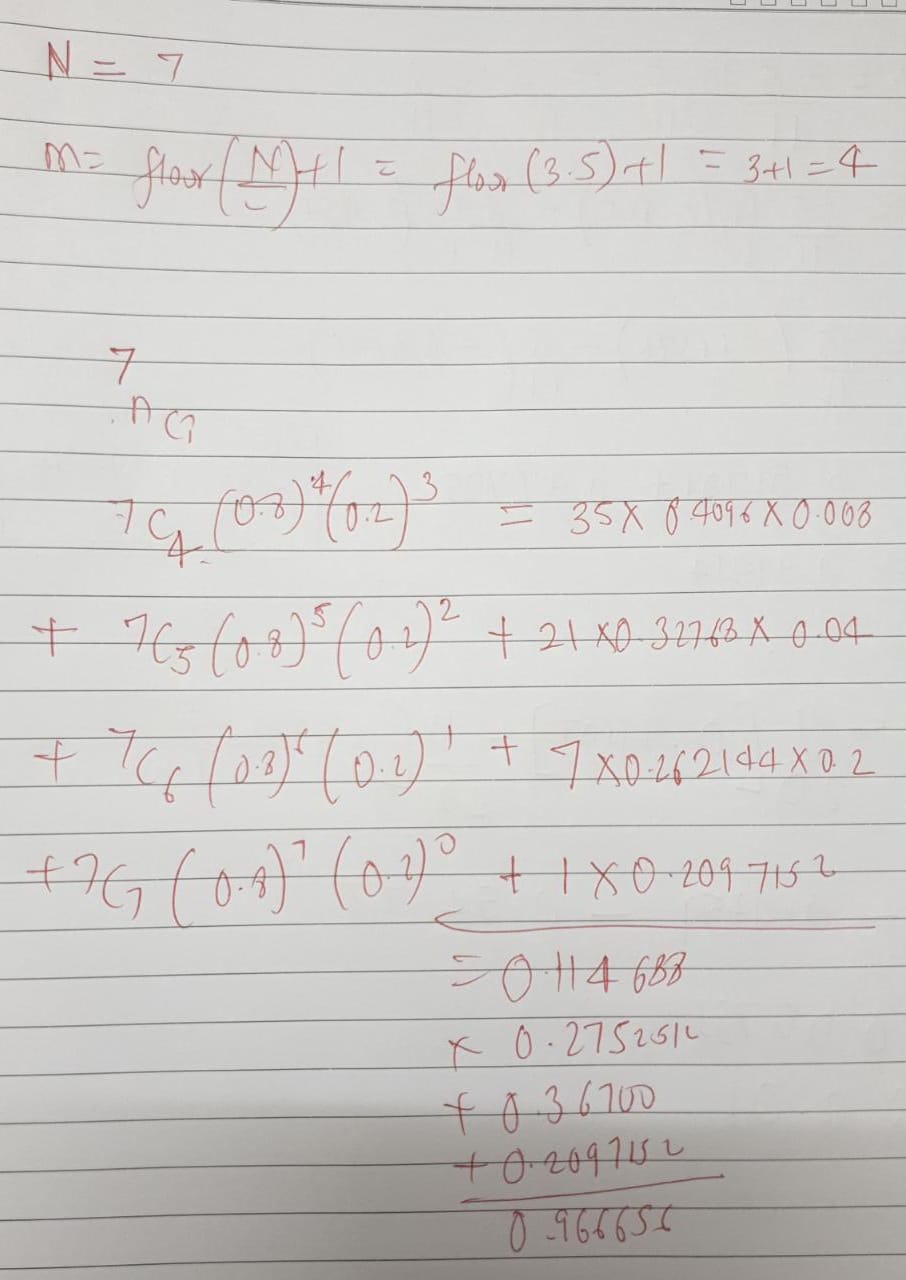 N = 7
m = floor(N/2)+1 = floor(3.5)+1 = 3+1 = 4
7
nC7
7C4 (0.8)^4 (0.2)^3 = 35 × 0.4096 × 0.008
+ 7C5 (0.8)^5 (0.2)^2 + 21 × 0.32768 × 0.04
+ 7C6 (0.8)^6 (0.2)^1 + 7 × 0.262144 × 0.2
+ 7C7 (0.8)^7 (0.2)^0 + 1 × 0.2097152
= 0.114688
+ 0.2752512
+ 0.36700
+ 0.2097152
0.966656